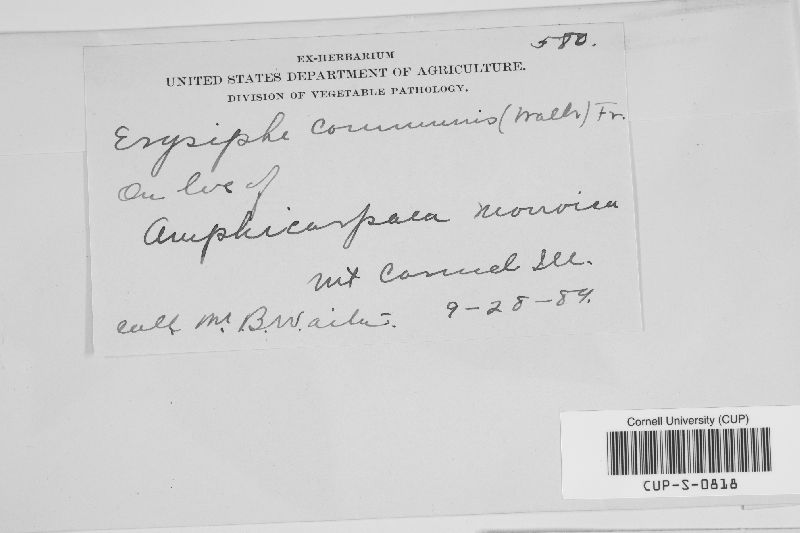 580.
EX-HERBARIUM
UNITED STATES DEPARTMENT OF AGRICULTURE.
DIVISION OF VEGETABLE PATHOLOGY.
Erysiphe communis (Wallr) Fr.
On lvs of
Amphicarpaea monoica
Mt Carmel Ill.
coll. M. B. Waite. 9-28-89.
Cornell University (CUP)
CUP-S-0818